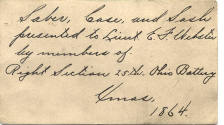 Saber, Case, and Sash
presented to Lieut. E. F. Webster
by members of
Right Section 25th. Ohio Battery
Xmas,
1864.